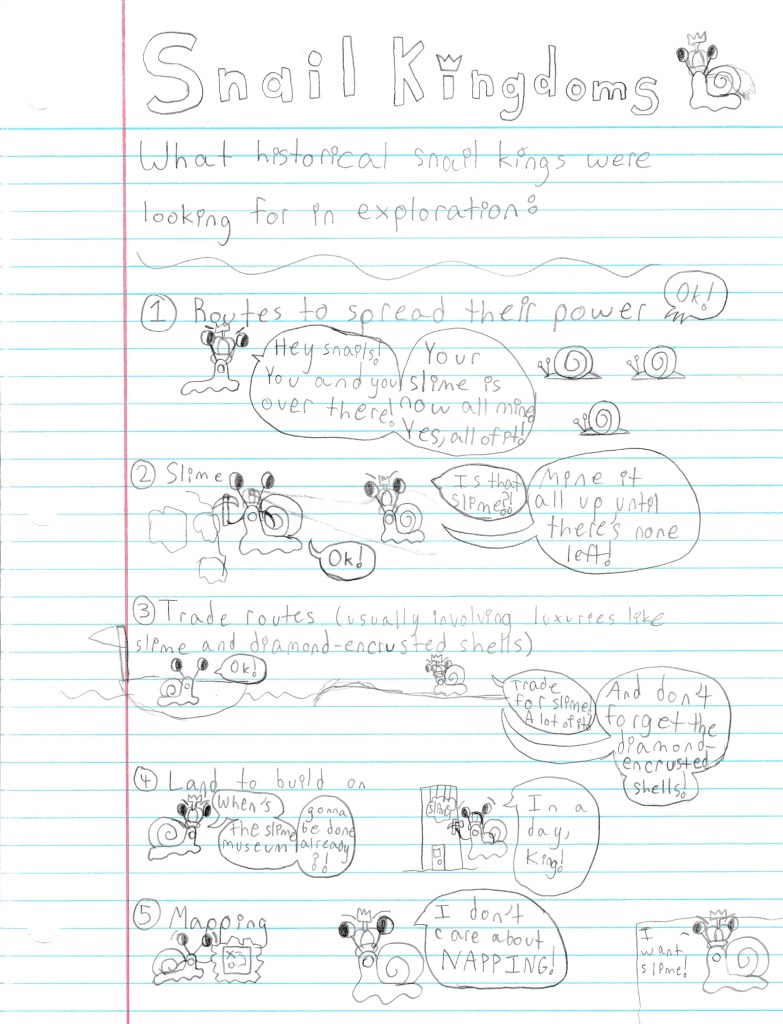 Snail Kingdoms
What historical snail kings were
looking for in exploration:
① Routes to spread their power
Ok!
Hey snails!
You and you
over there!
Your
slime is
now all mine
Yes, all of it!
② Slime
Is that
slime?!
Mine it
all up until
there's none
left!
Ok!
③ Trade routes (usually involving luxuries like
slime and diamond-encrusted shells)
Ok!
Trade
for slime!
A lot of it!
And don't
forget the
diamond-
encrusted
shells!
④ Land to build on
When's
the slime
museum
gonna
be done
already
?!
Slime
In a
day,
King!
⑤ Mapping
I don't
care about
NAPPING!
I
want
slime!